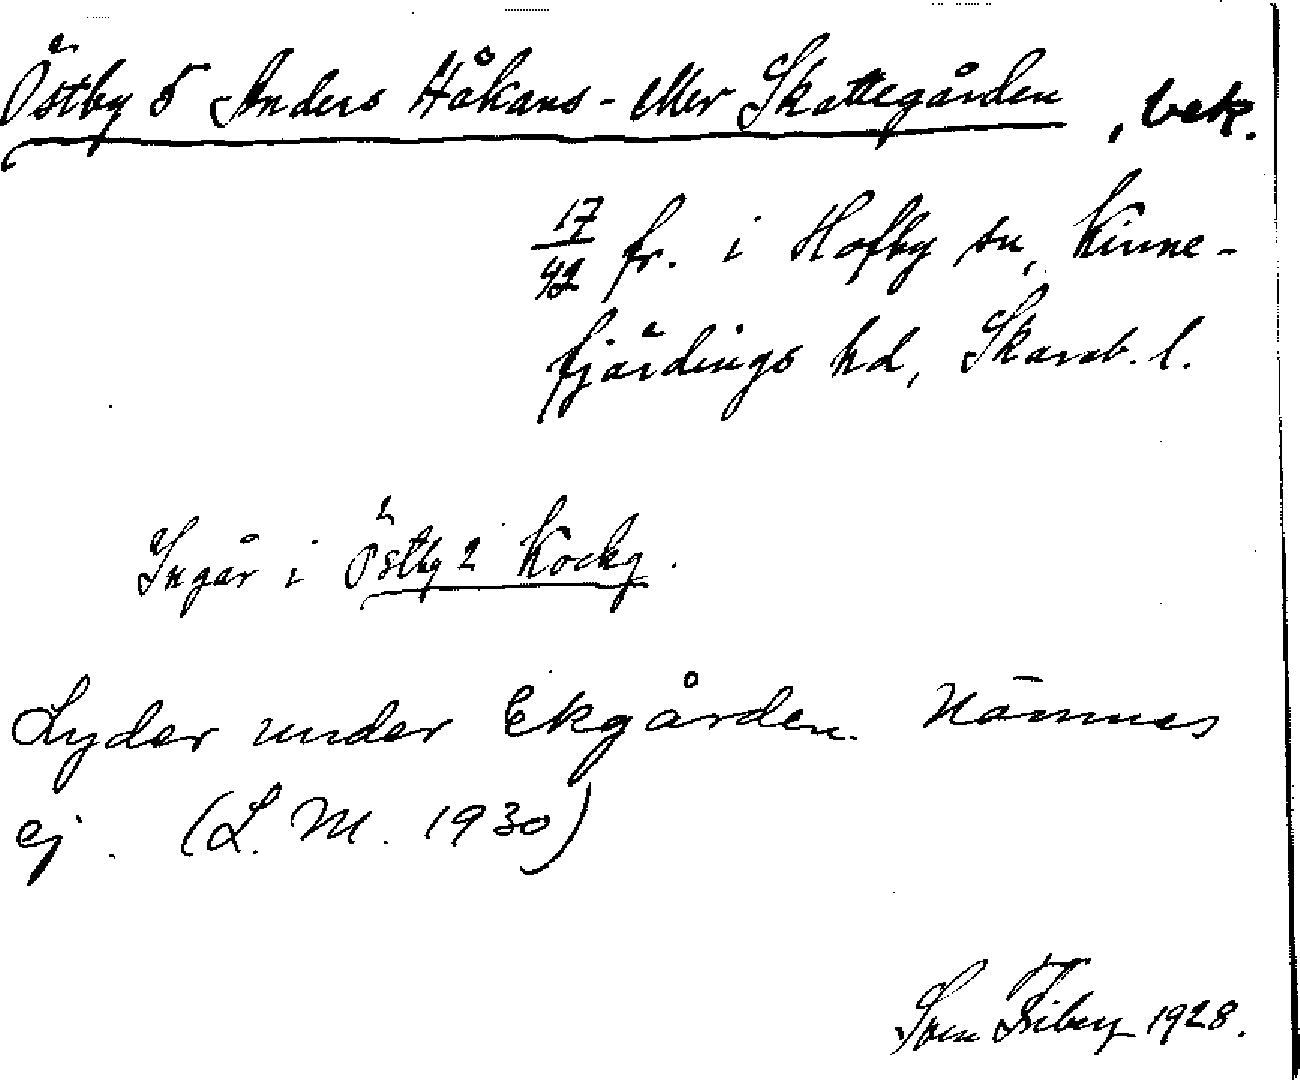 Östby 5 Anders Håkans- eller Skattegården, bek.
17/42 fr. i Hofby sn, Kinne-
fjärdings hd, Skarab. l.
Ingår i Östby 2 Kockg.
Lyder under Ekgården. Nämnes
ej. (L. M. 1930)
Sven 1928.